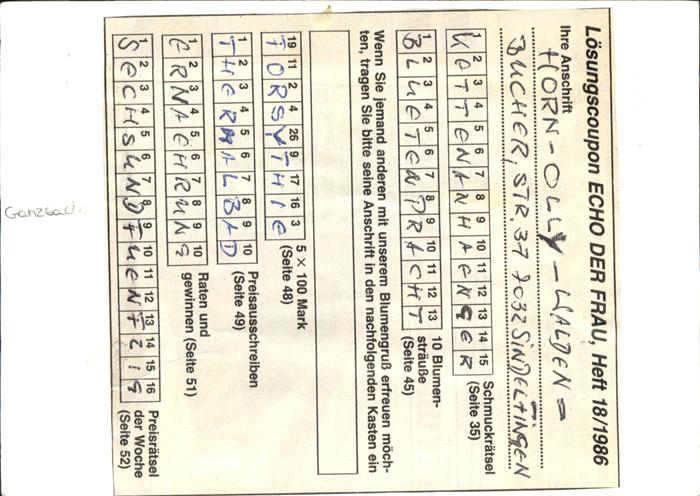 Lösungscoupon ECHO DER FRAU, Heft 18/1986
Ihre Anschrift
HORN-OLLY-WALDEN-
BUCHER, STR. 37 7032 SINDELFINGEN
1 2 3 4 5 6 7 8 9 10 11 12 13 14 15
KETTENANHAENGER
Schmuckrätsel
(Seite 35)
1 2 3 4 5 6 7 8 9 10 11 12 13
BLUETENPRACHT
10 Blumen-
sträuße
(Seite 45)
Wenn Sie jemand anderen mit unserem Blumengruß erfreuen möch-
ten, tragen Sie bitte seine Anschrift in den nachfolgenden Kasten ein
19 11 2 4 26 9 17 16 3
FORSYTHIE
5 × 100 Mark
(Seite 48)
1 2 3 4 5 6 7 8 9 10
THERMALBAD
Preisausschreiben
(Seite 49)
1 2 3 4 5 6 7 8 9 10
ERNAEHRUNG
Raten und
gewinnen (Seite 51)
1 2 3 4 5 6 7 8 9 10 11 12 13 14 15 16
SECHSUNDFUENFZIG
Preisrätsel
der Woche
(Seite 52)